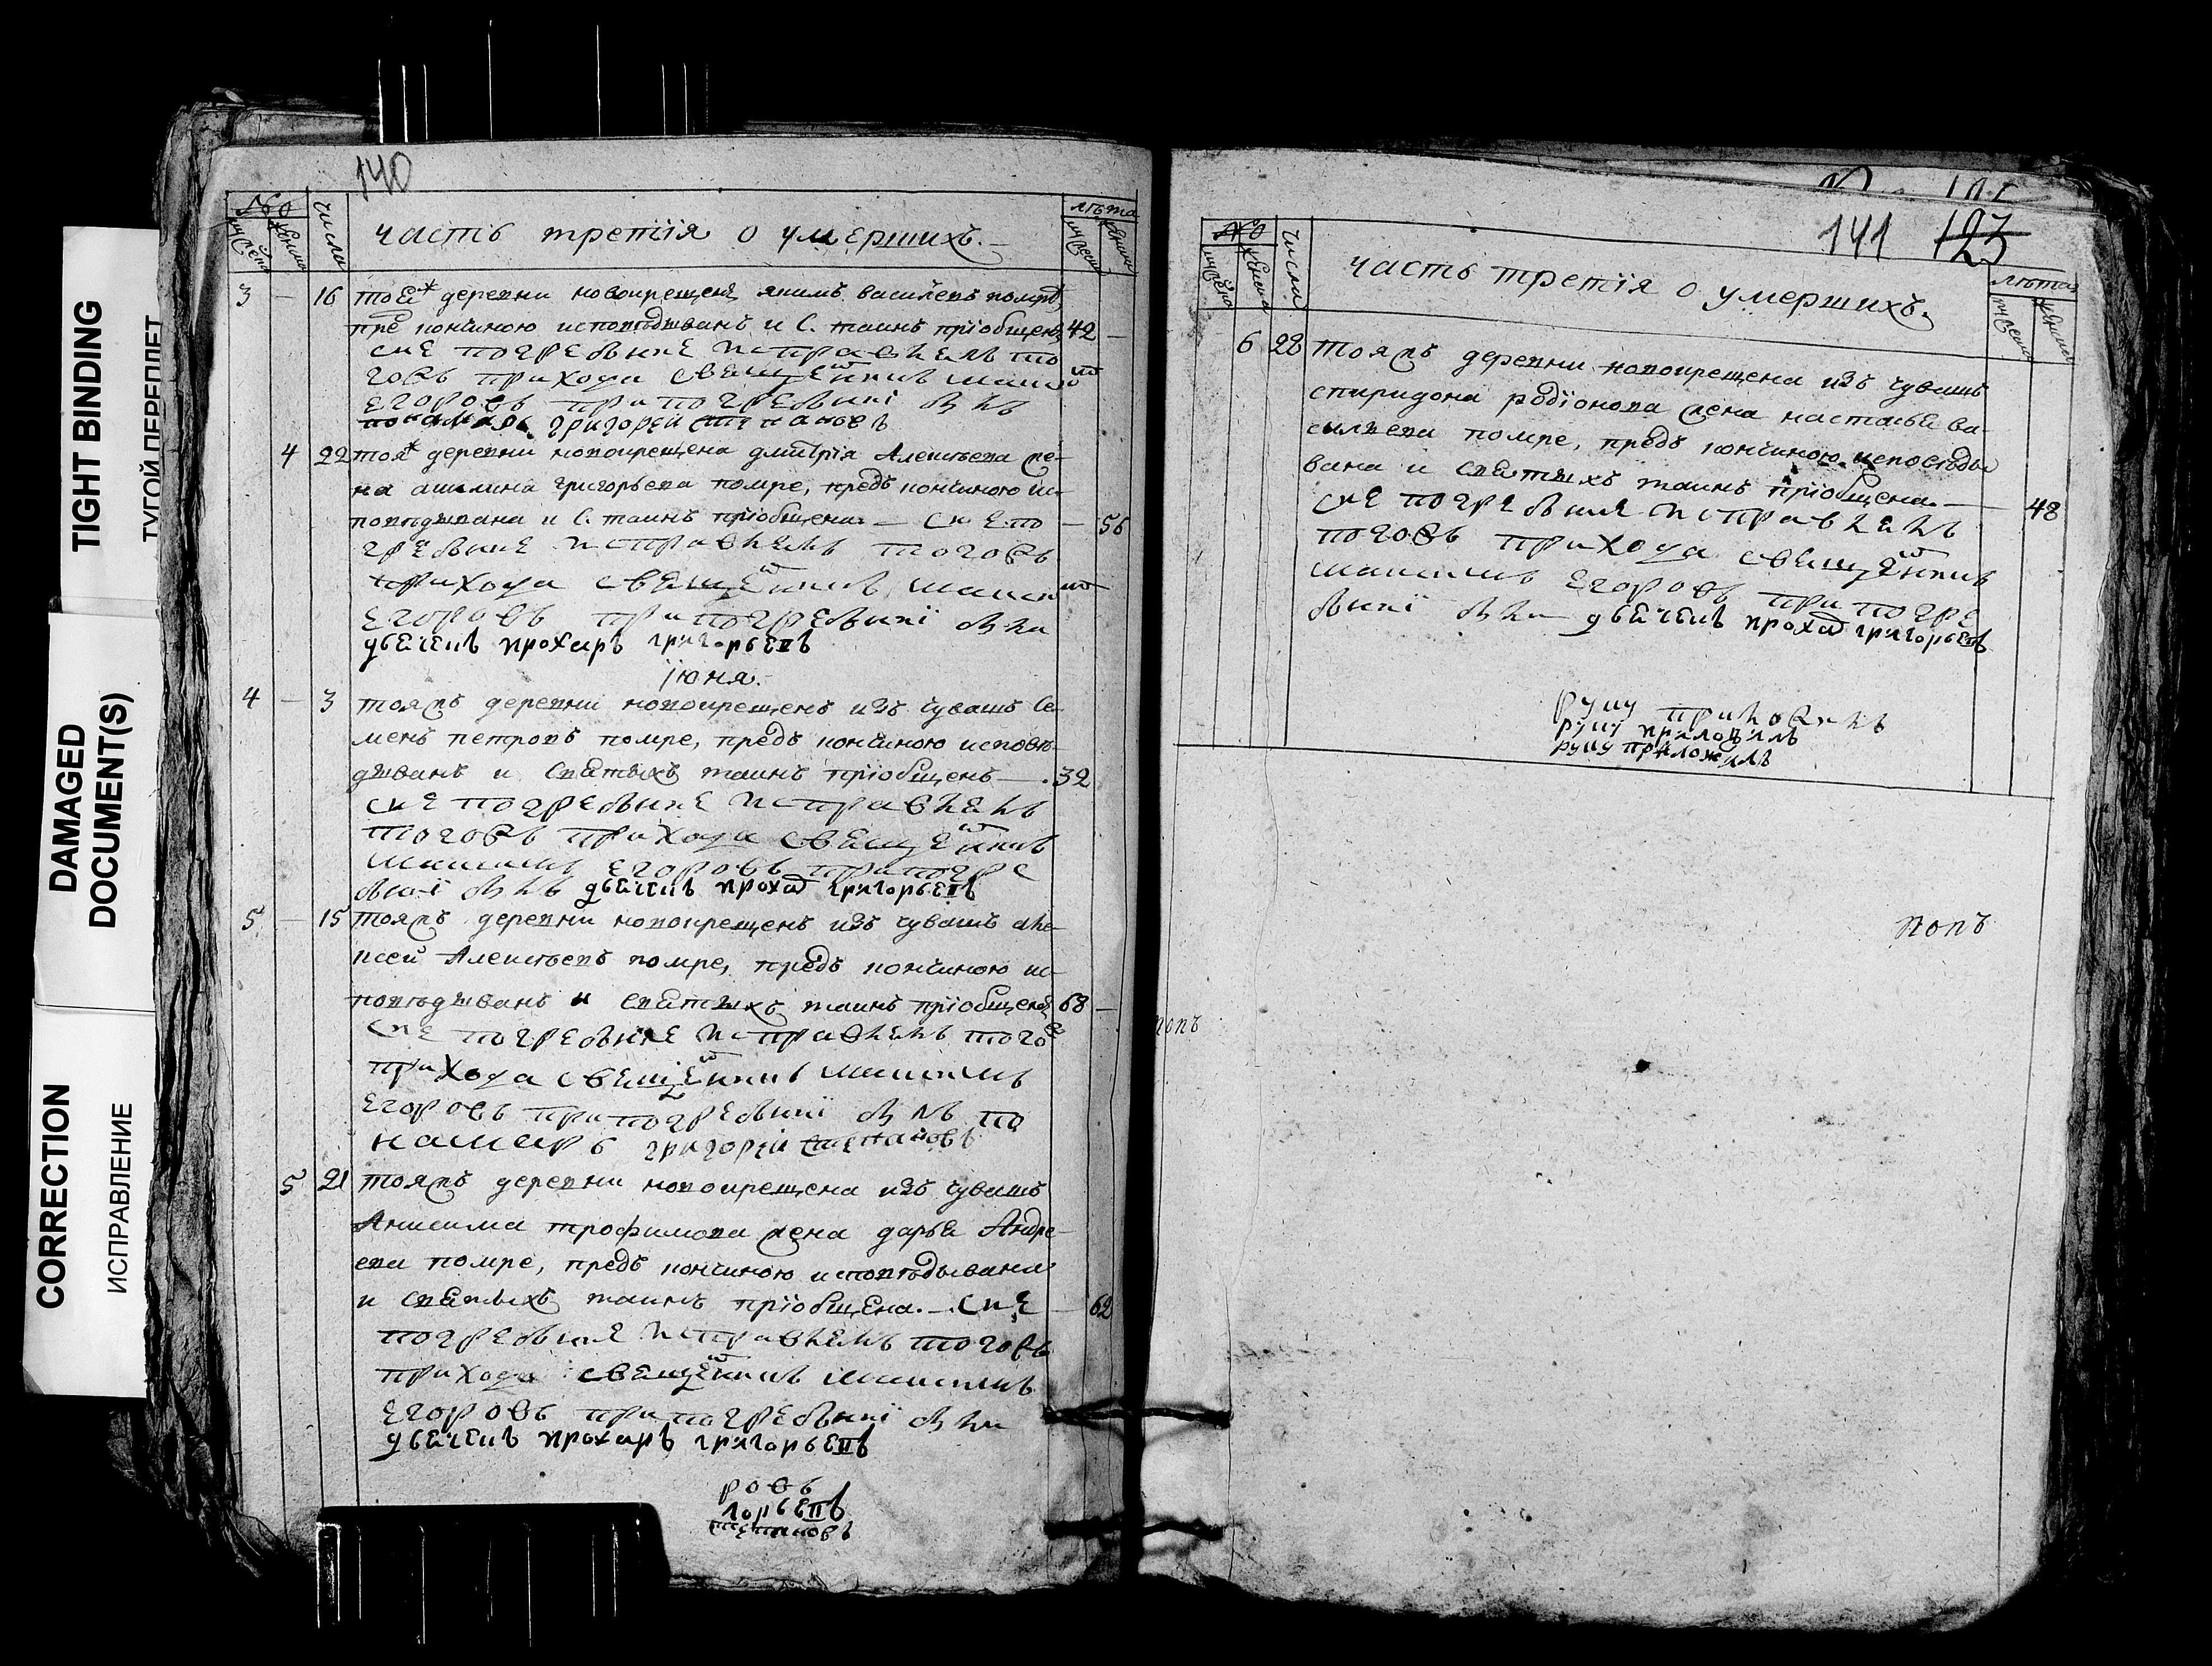 TIGHT BINDING
ТУГОЙ ПЕРЕПЛЕТ
DAMAGED
DOCUMENT(S)
CORRECTION
ИСПРАВЛЕНИЕ
140
№
числа
часть третїя о умершихъ.
лѣта
3 — 16 тоеж деревни новокрещенъ якимъ василевъ помре
пре кончиною исповѣдыванъ и С. таинъ прїобщенъ 42 —
сие погребение исправлялъ то
говъ прихода священникъ макси
егоровъ при погребениї былъ
понамарь григорей степановъ
4 22 тояж деревни новокрещена дмитрїя Алексѣева же-
на акилина григорьева помре, предъ кончиною ис-
повѣдывана и С. таинъ прїобщена — сие по — 56
гребение исправлялъ тоговъ
прихода священникъ макси
егоровъ при погребениї были
дьечекъ прохаръ григорьевъ
їюня.
4 — 3 тояжъ деревни новокрещенъ изъ чувашъ се-
менъ петровъ помре, предъ кончиною исповѣ-
дыванъ и святыхъ таинъ прїобщенъ — 32
сие погребение исправлялъ
тоговъ прихода священникъ
максимъ егоровъ при погре
бениї былъ дьечекъ прохар григорьевъ
5 — 15 тояжъ деревни новокрещенъ изъ чувашъ але-
ксей Алексѣевъ помре, предъ кончиною ис-
повѣдыванъ и святыхъ таинъ прїобщенъ 68 —
сие погребение исправлялъ того
прихода священникъ максимъ
егоровъ при погребениї былъ по
намарь григорей степановъ
5 21 тояжъ деревни новокрещена изъ чувашъ
Анисима трофимова жена дарья Андре-
ева помре, предъ кончиною исповѣдывана
и святыхъ таинъ прїобщена. — сие — 62
погребение исправлялъ тоговъ
прихода священникъ максимъ
егоровъ при погребениї были
дьечекъ прохаръ григорьевъ
ровъ
горьевъ
степановъ
141 123
№
числа
часть третїя о умершихъ.
лѣта
6 28 тояжъ деревни новокрещена изъ чувашъ
спиридона родїонова жена настасья ва-
сильева помре, предъ кончиною исповѣды
вана и святыхъ таинъ прїобщена. —
сие погребение исправлялъ — 48
тоговъ прихода священникъ
максимъ егоровъ при погре
бениї были дьечекъ прохар григорьевъ
руку приложилъ
руку приложилъ
руку приложилъ
попъ
попъ